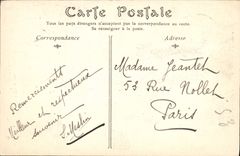 Carte Postale
Tous les pays étrangers n'acceptent pas la correspondance au recto.
Se renseigner à la poste.
Correspondance
Adresse
Madame Jeantet
53 Rue Nollet
Paris
Remerciements
Meilleur et respectueux
souvenir
53